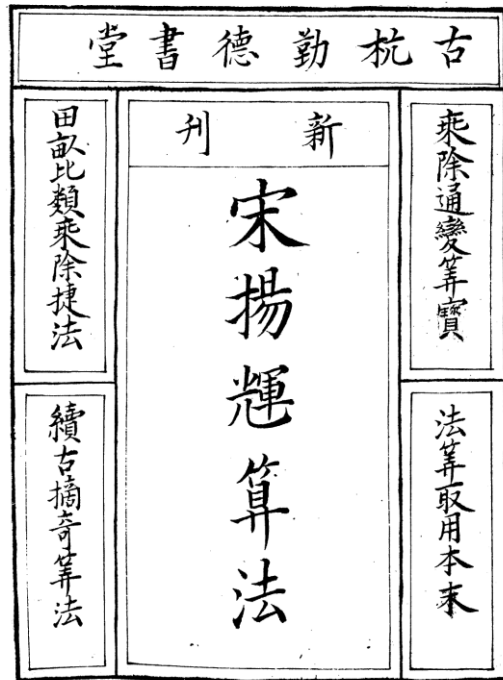 古杭勤德書堂
乘除通變筭寶
法筭取用本末
新刊
宋揚輝算法
田畝比類乘除捷法
續古摘奇筭法